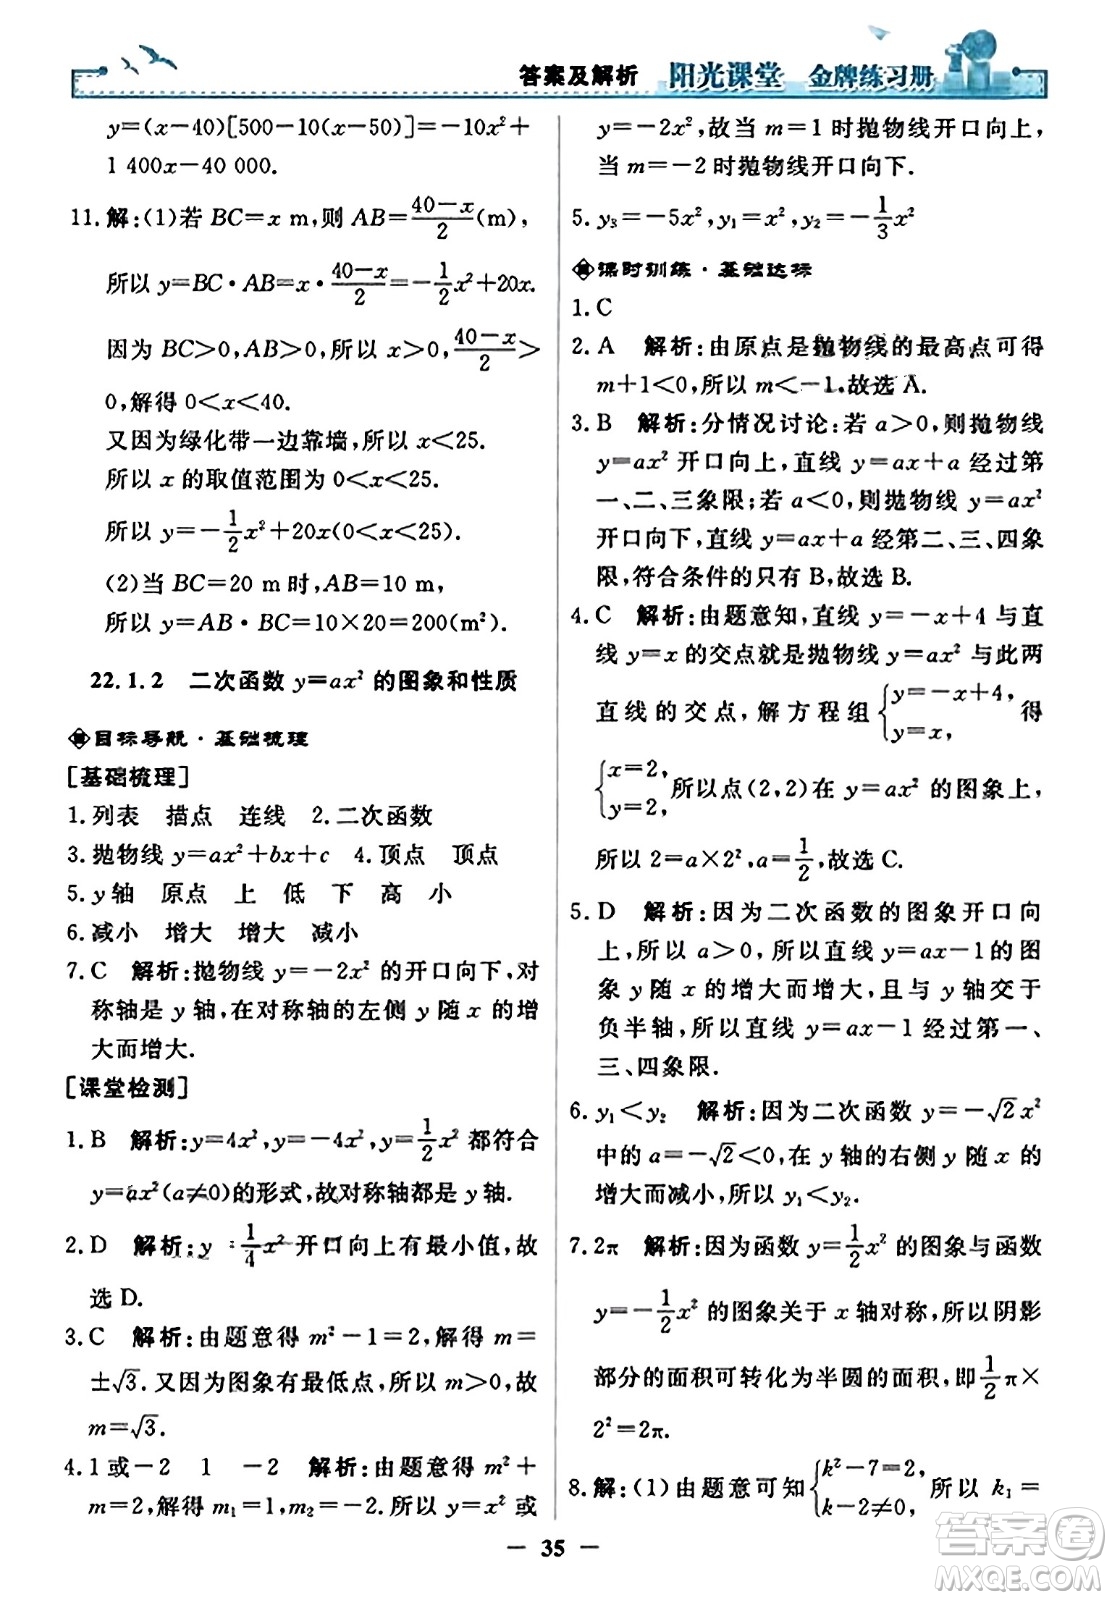 答案及解析 阳光课堂 金牌练习册
y=(x-40)[500-10(x-50)]=-10x²+
1 400x-40 000.
11.解:(1)若 BC=x m,则 AB=\frac{40-x}{2}(m),
所以 y=BC·AB=x·\frac{40-x}{2}=-\frac{1}{2}x²+20x.
因为 BC>0,AB>0,所以 x>0,\frac{40-x}{2}>
0,解得 0<x<40.
又因为绿化带一边靠墙,所以 x<25.
所以 x 的取值范围为 0<x<25.
所以 y=-\frac{1}{2}x²+20x(0<x<25).
(2)当 BC=20 m 时,AB=10 m,
所以 y=AB·BC=10×20=200(m²).
22.1.2 二次函数 y=ax² 的图象和性质
目标导航·基础梳理
[基础梳理]
1.列表 描点 连线 2.二次函数
3.抛物线 y=ax²+bx+c 4.顶点 顶点
5.y 轴 原点 上 低 下 高 小
6.减小 增大 增大 减小
7.C 解析:抛物线 y=-2x² 的开口向下,对
称轴是 y 轴,在对称轴的左侧 y 随 x 的增
大而增大.
[课堂检测]
1.B 解析:y=4x²,y=-4x²,y=\frac{1}{2}x² 都符合
y=ax²(a≠0)的形式,故对称轴都是 y 轴.
2.D 解析:y=\frac{1}{4}x² 开口向上有最小值,故
选 D.
3.C 解析:由题意得 m²-1=2,解得 m=
±√3.又因为图象有最低点,所以 m>0,故
m=√3.
4.1 或-2 1 -2 解析:由题意得 m²+
m=2,解得 m₁=1,m₂=-2.所以 y=x² 或
y=-2x²,故当 m=1 时抛物线开口向上,
当 m=-2 时抛物线开口向下.
5.y₃=-5x²,y₁=x²,y₂=-\frac{1}{3}x²
课时训练·基础达标
1.C
2.A 解析:由原点是抛物线的最高点可得
m+1<0,所以 m<-1.故选 A.
3.B 解析:分情况讨论:若 a>0,则抛物线
y=ax² 开口向上,直线 y=ax+a 经过第
一、二、三象限;若 a<0,则抛物线 y=ax²
开口向下,直线 y=ax+a 经第二、三、四象
限,符合条件的只有 B,故选 B.
4.C 解析:由题意知,直线 y=-x+4 与直
线 y=x 的交点就是抛物线 y=ax² 与此两
直线的交点,解方程组{y=-x+4, y=x, 得
{x=2, y=2, 所以点(2,2)在 y=ax² 的图象上,
所以 2=a×2²,a=\frac{1}{2},故选 C.
5.D 解析:因为二次函数的图象开口向
上,所以 a>0,所以直线 y=ax-1 的图
象 y 随 x 的增大而增大,且与 y 轴交于
负半轴,所以直线 y=ax-1 经过第一、
三、四象限.
6.y₁<y₂ 解析:因为二次函数 y=-√2x²
中的 a=-√2<0,在 y 轴的右侧 y 随 x 的
增大而减小,所以 y₁<y₂.
7.2π 解析:因为函数 y=\frac{1}{2}x² 的图象与函数
y=-\frac{1}{2}x² 的图象关于 x 轴对称,所以阴影
部分的面积可转化为半圆的面积,即\frac{1}{2}π×
2²=2π.
8.解:(1)由题意可知{k²-7=2, k-2≠0, 所以 k₁=
— 35 —
答案圈
MXQE.COM